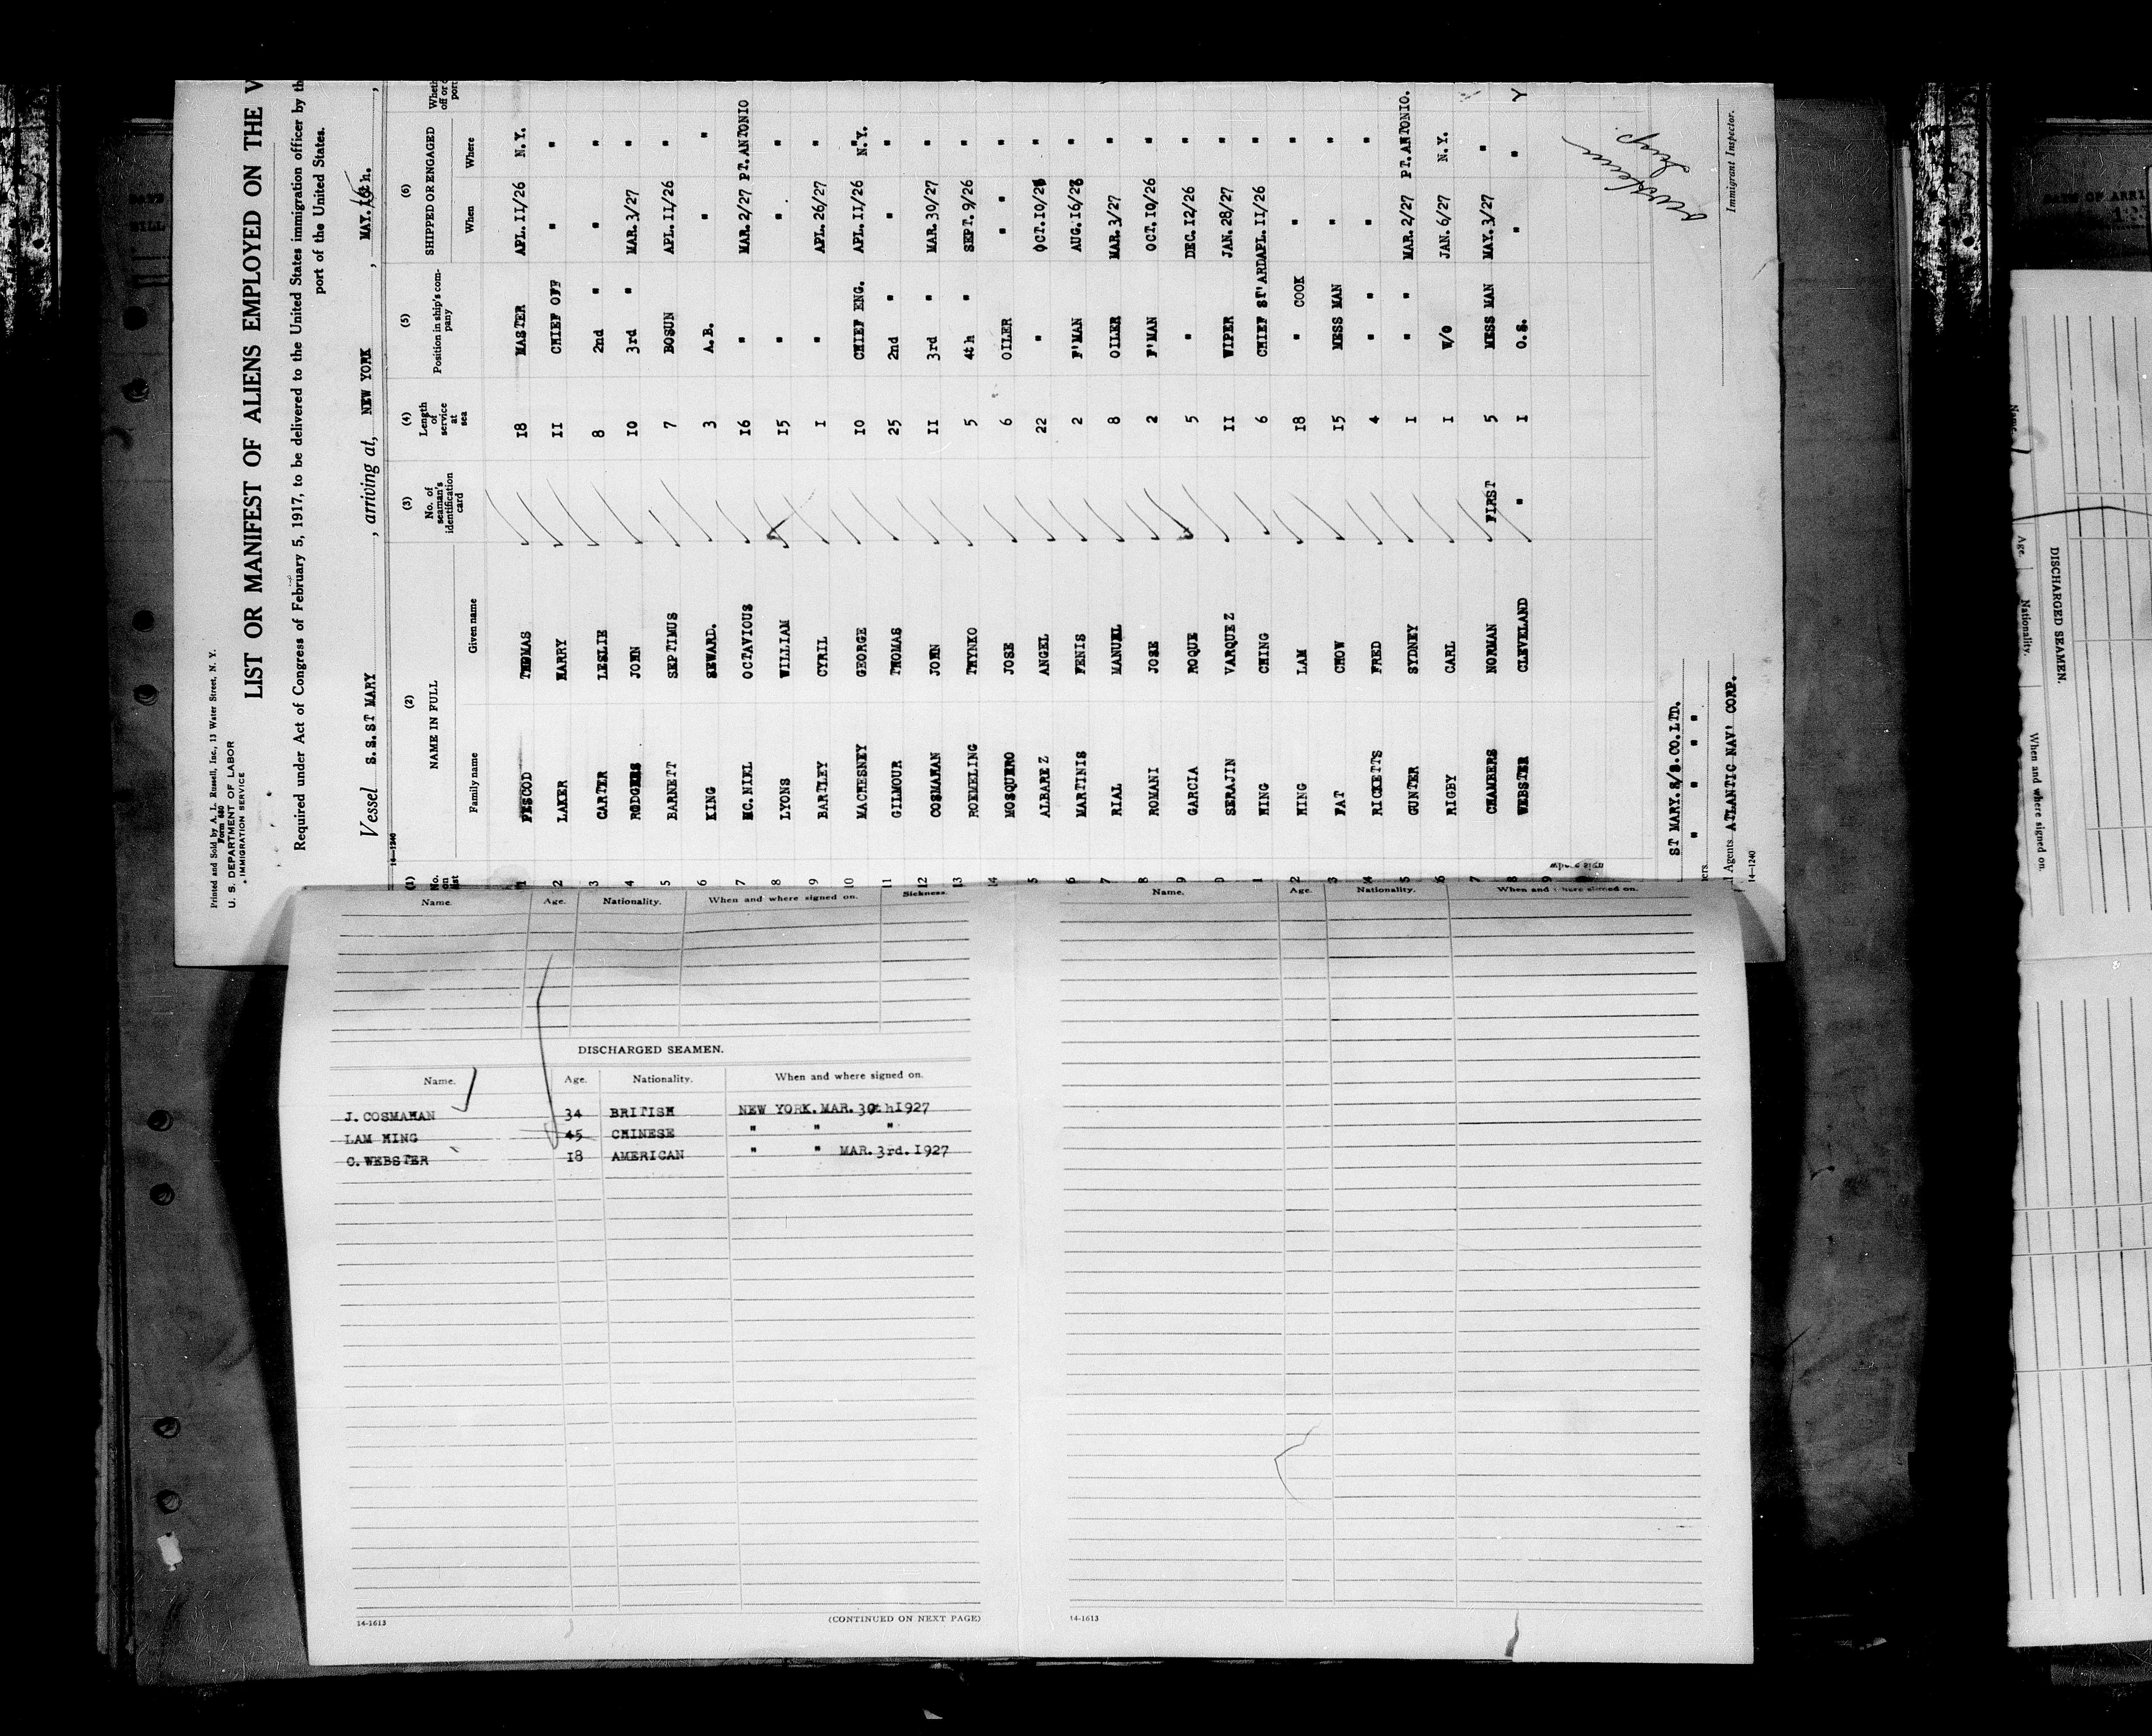 Printed and Sold by A. L. Russell, Inc., 13 Water Street, N. Y.
Form 680
U. S. DEPARTMENT OF LABOR
IMMIGRATION SERVICE
LIST OR MANIFEST OF ALIENS EMPLOYED ON THE
Required under Act of Congress of February 5, 1917, to be delivered to the United States immigration officer by th
port of the United States.
Vessel S.S. ST MARY, arriving at, NEW YORK, MAY.
14—1240
(1) (2) (3) (4) (5) (6)
No. on list NAME IN FULL No. of seaman's identification card Length of service at sea Position in ship's company SHIPPED OR ENGAGED
Family name Given name When Where
1 PESCOD THOMAS 18 MASTER APL. 11/26 N.Y.
2 LAKER HARRY 11 CHIEF OFF " "
3 CARTER LESLIE 8 2nd " " "
4 RODGERS JOHN 10 3rd " MAR. 3/27 "
5 BARNETT SEPTIMUS 7 BOSUN APL. 11/26 "
6 KING SEWARD. 3 A.B. " "
7 MC.NIEL OCTAVIOUS 16 " MAR. 2/27 PT. ANTONIO
8 LYONS WILLIAM 15 " " "
9 BARTLEY CYRIL 1 " APL. 26/27 "
10 MACHESNEY GEORGE 10 CHIEF ENG. APL. 11/26 N.Y.
11 GILMOUR THOMAS 25 2nd " " "
12 COSMAHAN JOHN 11 3rd " MAR. 30/27 "
13 ROEMELING THYNKO 5 4th " SEPT. 9/26 "
14 MOSQUERO JOSE 6 OILER " "
5 ALBAREZ ANGEL 22 " OCT. 10/26 "
6 MARTINIS FENIS 2 F'MAN AUG. 16/26 "
7 RIAL MANUEL 8 OILER MAR. 3/27 "
8 ROMANI JOSE 2 F'MAN OCT. 10/26 "
9 GARCIA ROQUE 5 " DEC. 12/26 "
0 SERAJIN VARQUEZ 11 WIPER JAN. 28/27 "
1 HING CHING 6 CHIEF ST'ARD APL. 11/26 "
2 HING LAM 18 " COOK " "
3 FAT CHOW 15 MESS MAN " "
4 RICKETTS FRED 4 " " " "
5 GUNTER SYDNEY 1 " " MAR. 2/27 PT. ANTONIO.
6 RIGBY CARL 1 W/O JAN. 6/27 N.Y.
7 CHAMBERS NORMAN FIRST 5 MESS MAN MAY. 3/27 "
8 WEBSTER CLEVELAND " 1 O.S. " "
9
ST MARY. S/S. CO. LTD.
" " " "
Agents. ATLANTIC NAV' CORP.
14—1240
Immigrant Inspector.
Name. Age. Nationality. When and where signed on. Sickness.
DISCHARGED SEAMEN.
Name. Age. Nationality. When and where signed on.
J. COSMAHAN 34 BRITISH NEW YORK. MAR. 30th 1927
LAM HING 45 CHINESE " " "
C. WEBSTER 18 AMERICAN " " MAR. 3rd. 1927
14-1613
(CONTINUED ON NEXT PAGE)
Name. Age. Nationality. When and where signed on.
14-1613
DISCHARGED SEAMEN.
Name. Age. Nationality. When and where signed on.